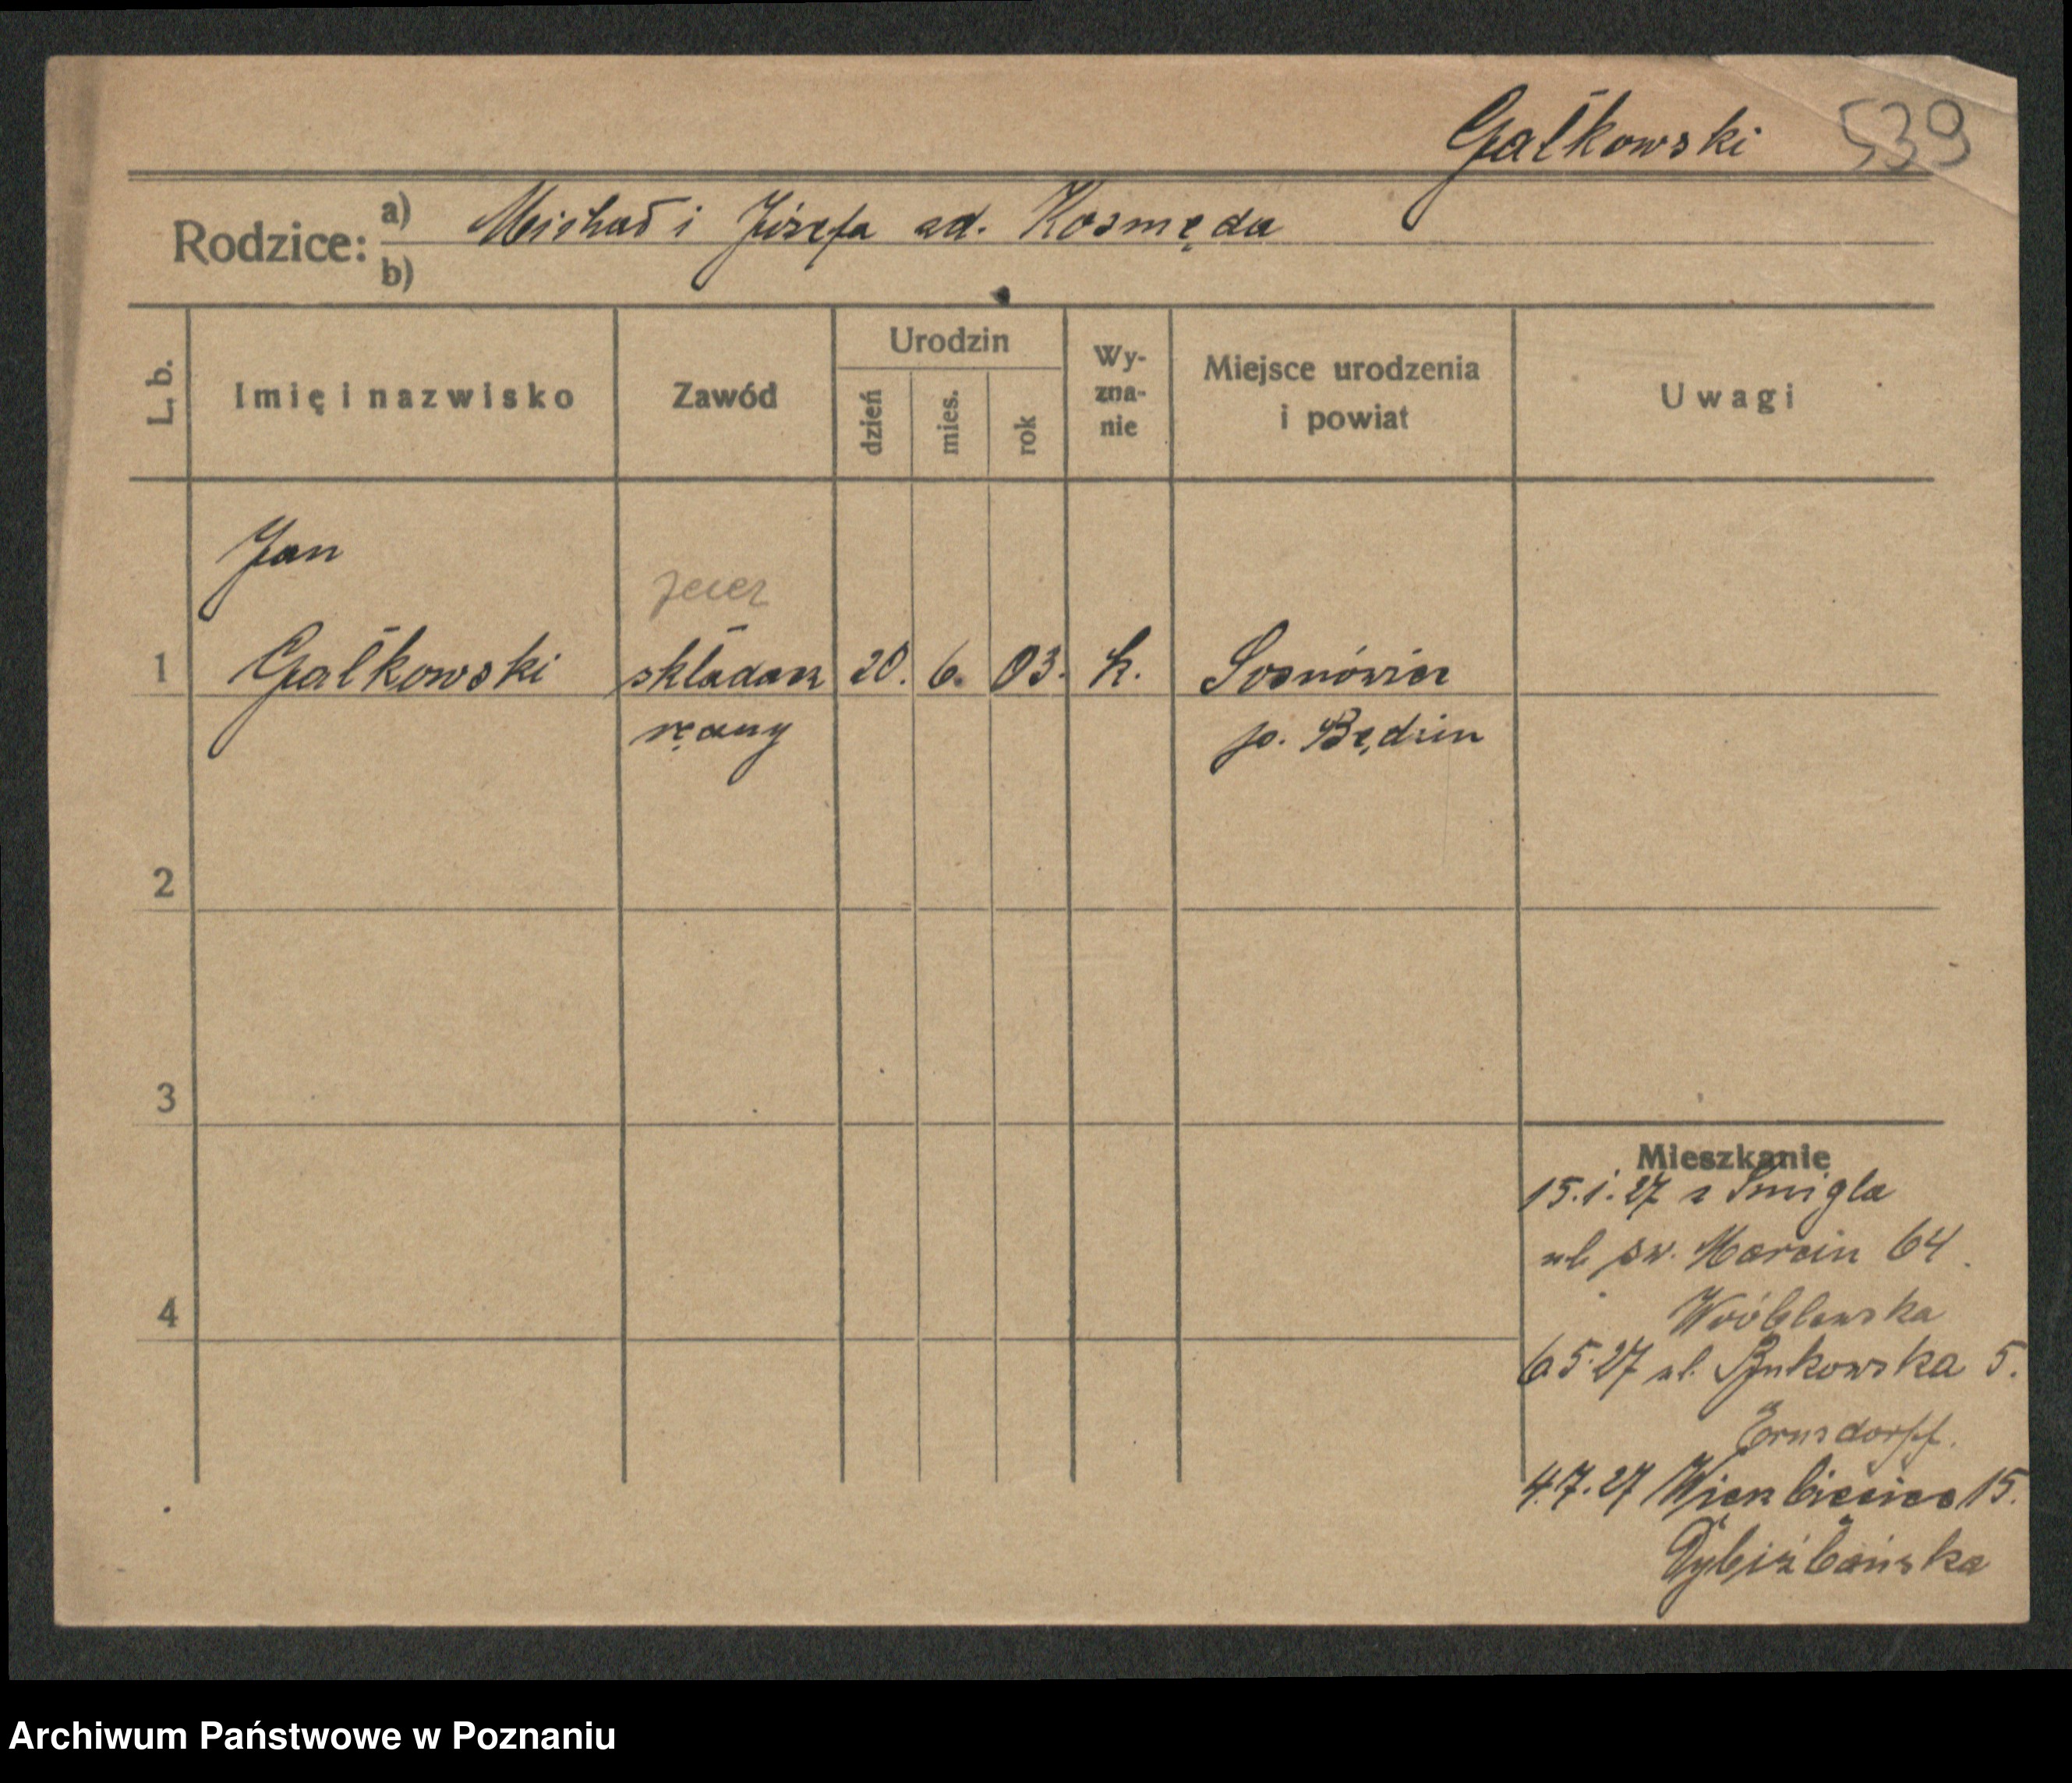 Gałkowski 539
Rodzice: a) Michał i Józefa zd. Kosmęda
b)
L. b. Imię i nazwisko Zawód Urodzin dzień mies. rok Wy-zna-nie Miejsce urodzenia i powiat Uwagi
Jan
zecer
1 Gałkowski składacz 20. 6. 03. k. Sosnówiec
ręczny p. Będzin
2
3
Mieszkanie
15.1.27 z Śmigla
ul św. Marcin 64.
4
Wróblewska
6 5.27 ul. Bukowska 5.
Ernsdorff.
4.7.27 Wierzbięcice 15.
Dybizbańska
Archiwum Państwowe w Poznaniu